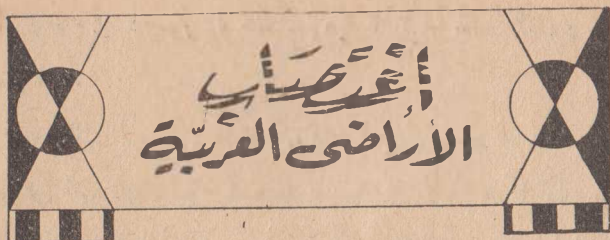 إغتصاب
الأراضى العربيّة